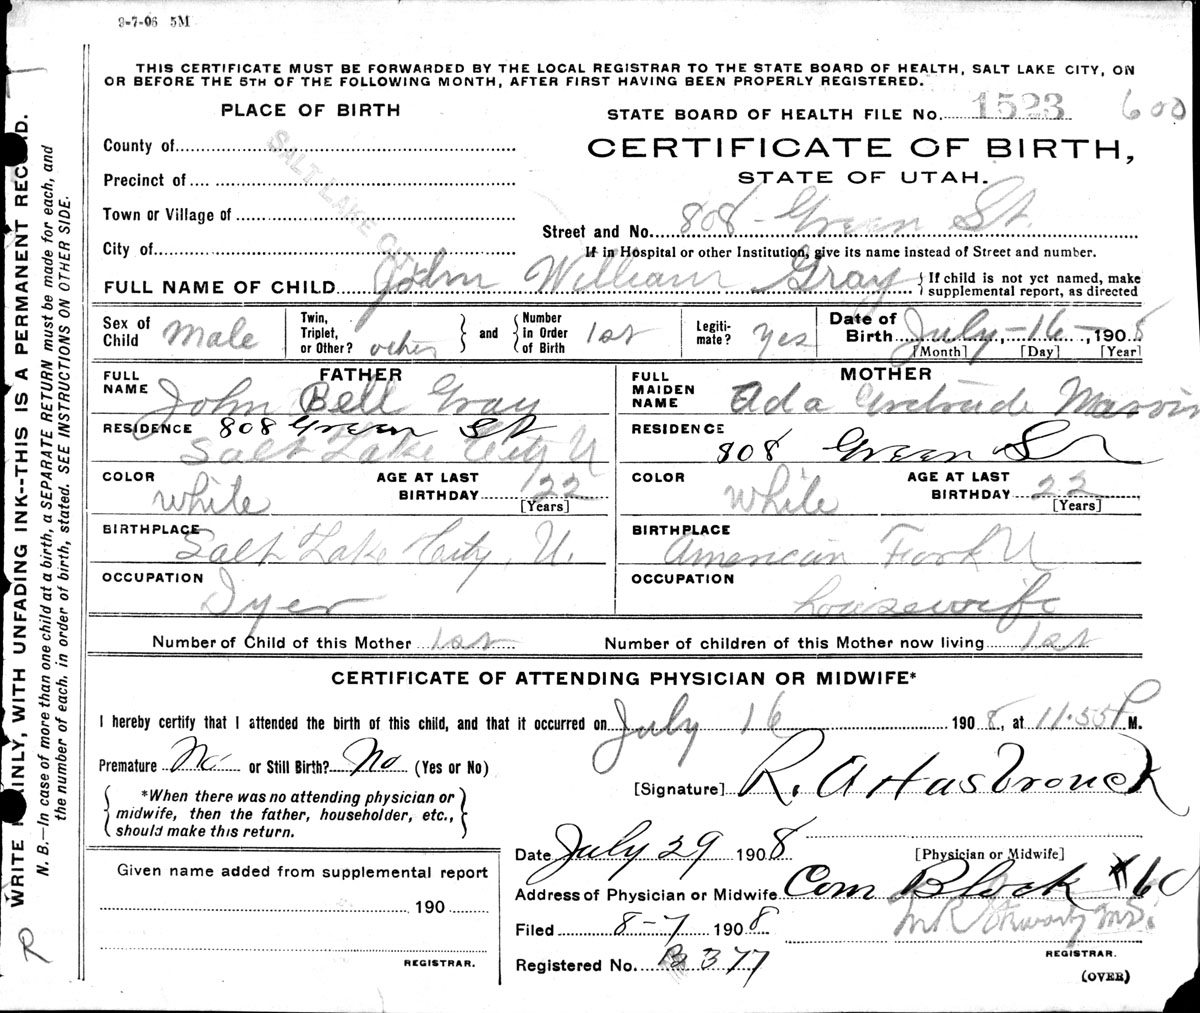 2-7-06 5M
THIS CERTIFICATE MUST BE FORWARDED BY THE LOCAL REGISTRAR TO THE STATE BOARD OF HEALTH, SALT LAKE CITY, ON
OR BEFORE THE 5TH OF THE FOLLOWING MONTH, AFTER FIRST HAVING BEEN PROPERLY REGISTERED.
PLACE OF BIRTH
STATE BOARD OF HEALTH FILE No. 1523 600
County of
CERTIFICATE OF BIRTH,
Precinct of
STATE OF UTAH.
SALT LAKE
Town or Village of
Street and No. 808 Green St.
City of
If in Hospital or other Institution, give its name instead of Street and number.
FULL NAME OF CHILD John William Gray { If child is not yet named, make supplemental report, as directed
Sex of Child Male Twin, Triplet, or Other? other } and { Number in Order of Birth 1st Legiti-mate? Yes Date of Birth July-16-, 1908
[Month] [Day] [Year]
FATHER
FULL NAME John Bell Gray
RESIDENCE 808 Green St
Salt Lake City U
COLOR White AGE AT LAST BIRTHDAY 22
[Years]
BIRTHPLACE Salt Lake City, U.
OCCUPATION Dyer
MOTHER
FULL MAIDEN NAME Ada Gertrude
RESIDENCE 808 Green St
COLOR White AGE AT LAST BIRTHDAY 22
[Years]
BIRTHPLACE American Fork U
OCCUPATION housewife
Number of Child of this Mother 1st Number of children of this Mother now living 1st
CERTIFICATE OF ATTENDING PHYSICIAN OR MIDWIFE*
I hereby certify that I attended the birth of this child, and that it occurred on July 16 1908, at 11.55 P M.
Premature No or Still Birth? No (Yes or No)
[Signature] R. A Hasbrouck
{ *When there was no attending physician or midwife, then the father, householder, etc., should make this return. }
[Physician or Midwife]
Date July 29 1908
Address of Physician or Midwife Com Block 
Filed 8-7 1908
M.D.
REGISTRAR.
Registered No. B 377
(OVER)
Given name added from supplemental report
190
REGISTRAR.
WRITE PLAINLY, WITH UNFADING INK--THIS IS A PERMANENT RECORD.
N. B.—In case of more than one child at a birth, a SEPARATE RETURN must be made for each, and
the number of each. in order of birth, stated. SEE INSTRUCTIONS ON OTHER SIDE.
R